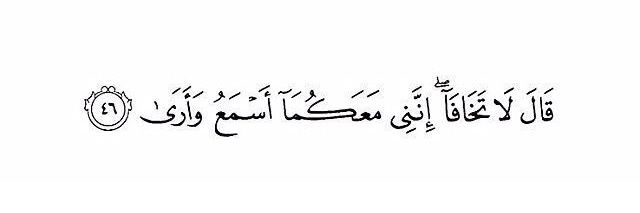 قَالَ لَا تَخَافَآ ۖ إِنَّنِى مَعَكُمَآ أَسْمَعُ وَأَرَىٰ ٤٦